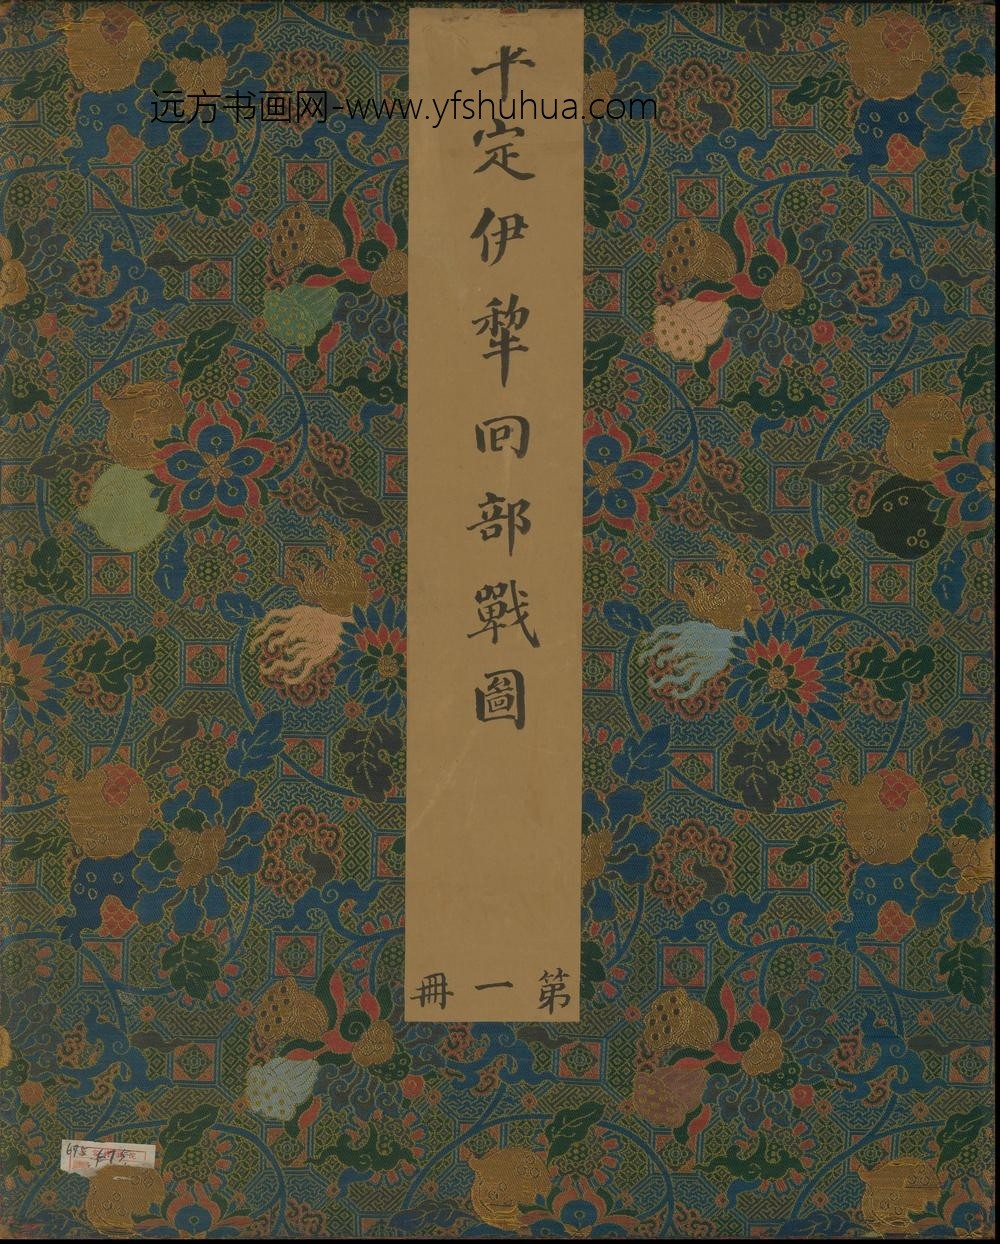 远方书画网-www.yfshuhua.com
平定伊犂回部戰圖
第一冊
675